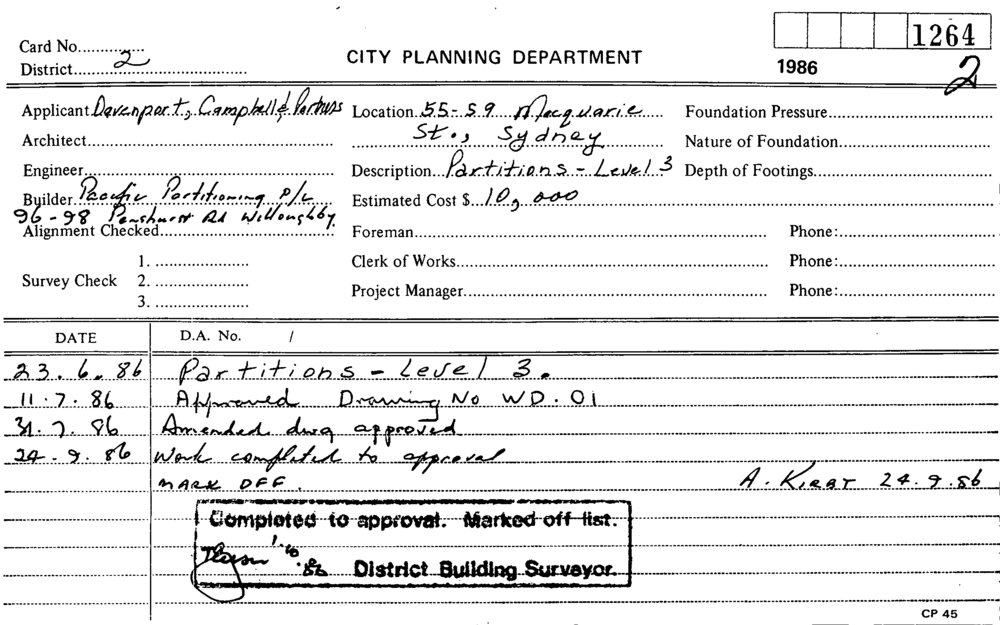 Card No.
1264
District 2
CITY PLANNING DEPARTMENT
1986
2
Applicant Davenport, Campbell & Partners
Location 55-59 Macquarie
St., Sydney
Foundation Pressure
Architect
Nature of Foundation
Engineer
Description Partitions - Level 3
Depth of Footings
Builder Pacific Partitioning P/L
96-98 Penshurst Rd Willoughby.
Estimated Cost $ 10,000
Alignment Checked
Foreman
Phone:
Survey Check
1.
2.
3.
Clerk of Works
Phone:
Project Manager
Phone:
DATE D.A. No. /
23.6.86 Partitions - Level 3.
11.7.86 Approved Drawing No WD.01
31.7.86 Amended dwg approved
24.9.86 Work completed to approval
MARK OFF. A. Kirat 24.9.86
Completed to approval. Marked off list.
1.10.86 District Building Surveyor.
CP 45